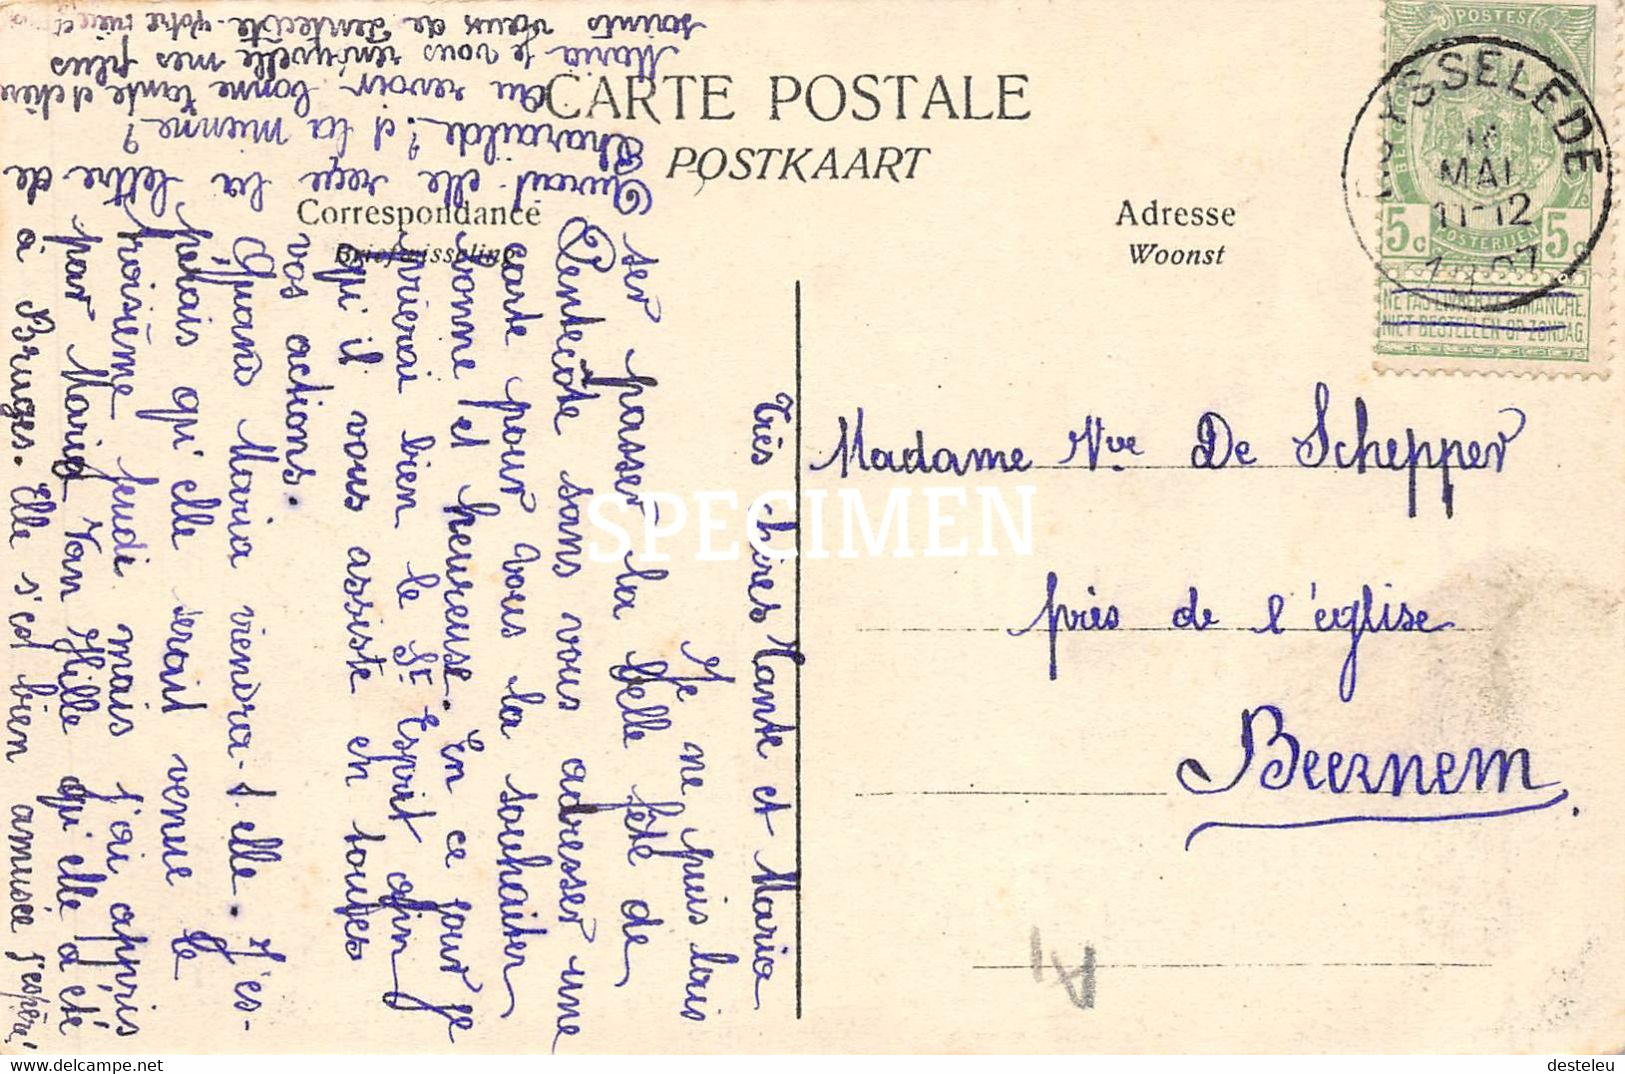 CARTE POSTALE
POSTKAART
Correspondance
Briefwisseling
Adresse
Woonst
POSTES
POSTERIJEN
5c 5c
NE PAS LIVRER LE DIMANCHE.
NIET BESTELLEN OP ZONDAG.
RUYSSELEDE
MAI
11-12
Madame Vve De Schepper
près de l'église
Beernem.
Très chères Tante et Maria
Je ne puis lais
ser passer la belle fête de
Pentecôte sans vous adresser une
carte pour vous la souhaiter
bonne et heureuse. En ce jour je
prierai bien le St Esprit afin
qu'il vous assiste en toutes
vos actions.
Quand Maria viendra-t-elle. J'es-
pérais qu'elle serait venue le
troisième jeudi mais j'ai appris
par Maria Van Hille qu'elle a été
à Bruges. Elle s'est bien amusée j'espère!
Aurait-elle reçu la lettre de
Pharaïlde? et la mienne?
Au revoir bonne tante et chère
Maria je vous renouvelle mes plus
saints vœux de Pentecôte. Votre nièce et
SPECIMEN
A1
www.delcampe.net
desteleu